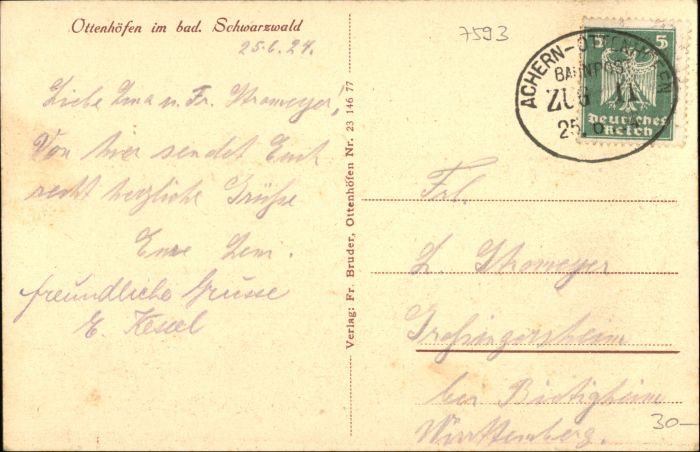 Ottenhöfen im bad. Schwarzwald
25.6.27.
7593
Liebe Emma u. Fr. Stromeyer!
Von hier sendet Euch
recht herzliche Grüße
Eure
freundliche Grüsse
E. Kesel
Verlag: Fr. Bruder, Ottenhöfen Nr. 23 146 77
ACHERN-OTTENHÖFEN
BAHNPOST
ZUG 11
25.6.
5 5
Deutsches
Reich
Frl.
L. Stromeyer
Großingersheim
bei Bietigheim
Württemberg.
30-